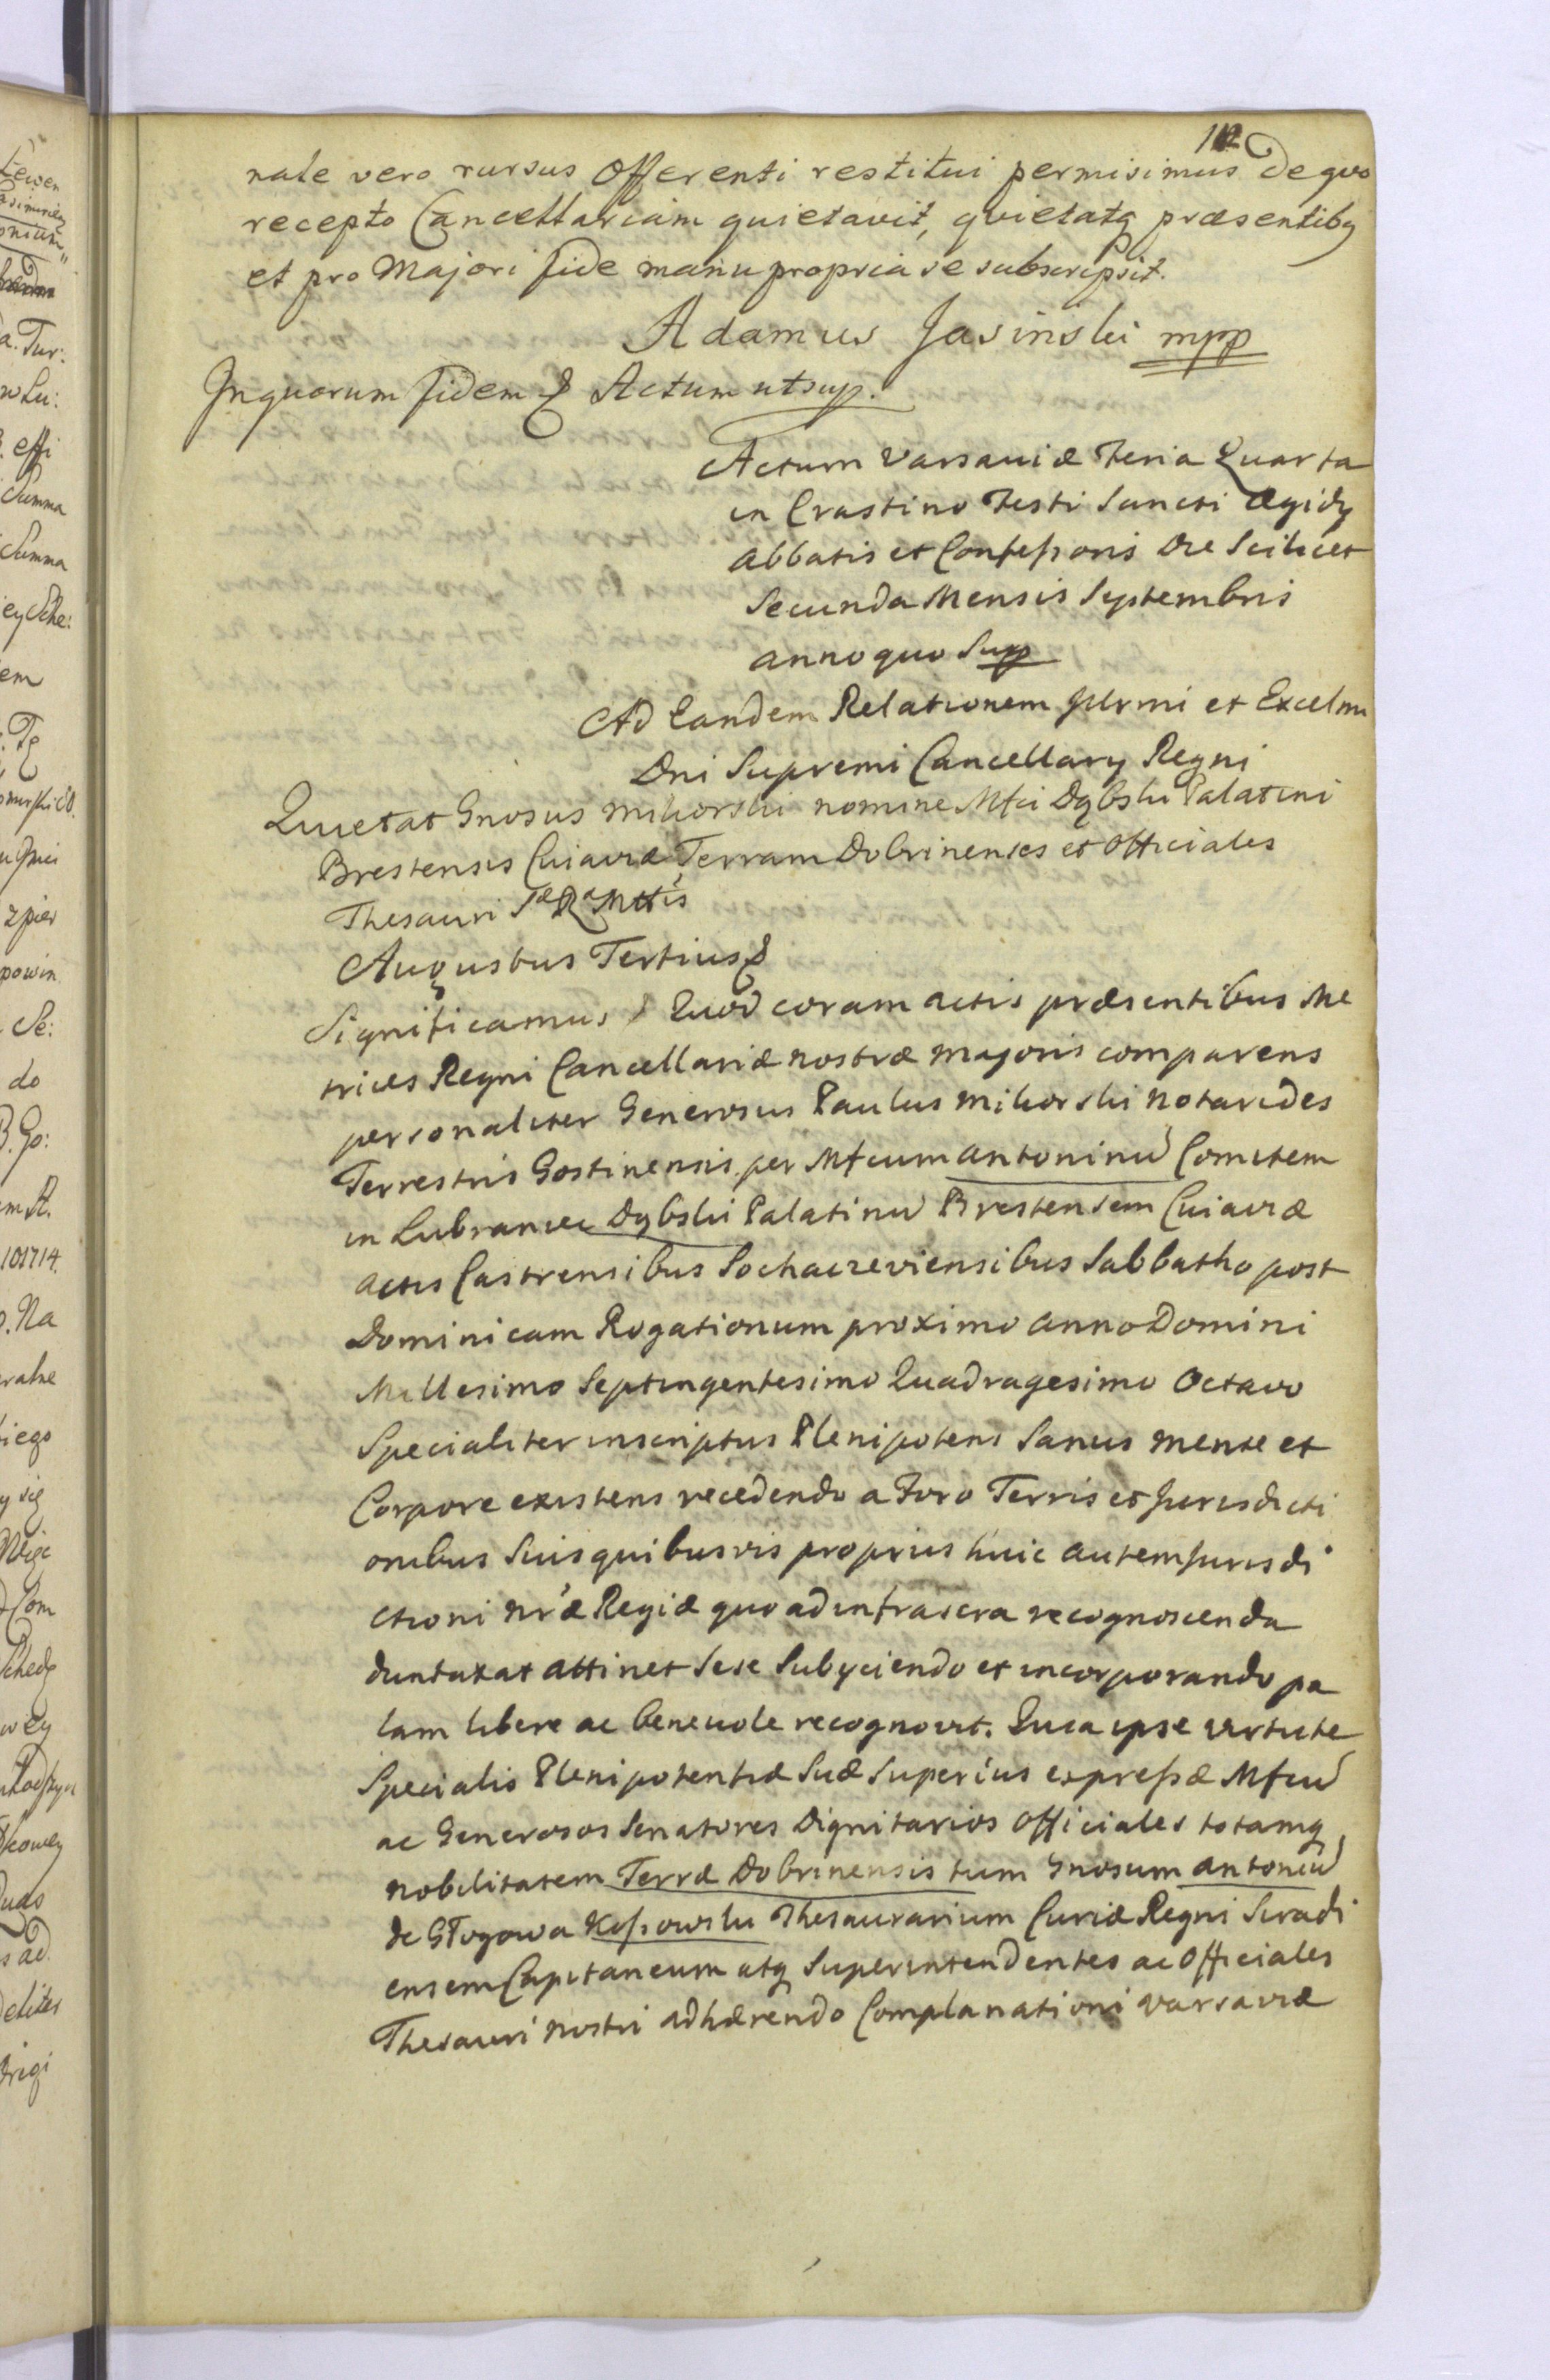 112
nale vero rursus Offerenti restitui permisimus De quo
recepto Cancellariam quietavit, quietatq præsentibq
et pro Majori fide manu propria se subscripsit.
Adamus Jasinski mpp
In quorum fidem & Actum ut sup.
Actum Varsaviæ Feria Quarta
in Crastino Festi Sancti Ægidy
Abbatis et Confeßoris Die Scilicet
Secunda Mensis Septembris
anno quo Supp
Ad Eandem Relationem Illrmi et Excelmi
Dni Supremi Cancellary Regni
Quietat Gnosus Mikorski nomine Mfci Dąbski Palatini
Brestensis Cuiaviæ Terram Dobrinenses et Officiales
Thesauri Sæ Ræ Mttis
Augustus Tertius &
Significamus & Quod coram actis præsentibus Me
trices Regni Cancellariæ nostræ majoris comparens
personaliter Generosus Paulus Mikorski Notarides
Terrestris Gostinensis per Mfcum Antoninu Comitem
in Lubraniec Dąbski Palatinu Brestensem Cuiaviæ
actis Castrensibus Sochaczeviensibus Sabbatho post
Dominicam Rogationum proximo anno Domini
Millesimo Septingentesimo Quadragesimo Octavo
Specialiter inscriptus Plenipotens Sanus mente et
Corpore existens recedendo a Foro Terris et Jurisdicti
onibus Suis quibusvis proprius huic autem Jurisdi
ctioni nræ Regiæ quo ad infrascra recognoscenda
duntaxat attinet Sese Subyciendo et incorporando pa
lam libere ac benevole recognovit. Quia ipse virtute
Specialis Plenipotentiæ Suæ Superius expreßæ Mfcu
ac Generosos Senatores Dignitarios Officiales totamq
nobilitatem Terræ Dobrinensis tum Gnosum Antoniu
de Głogowa Koßowski Thesaurarium Curiæ Regni Siradi
ensem Capitaneum atq Superintendentes ac Officiales
Thesauri nostri adhærendo Complanationi Varsaviæ